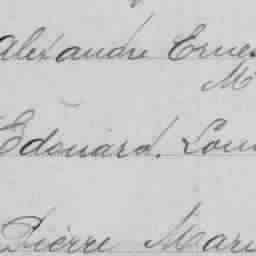 Alexandre Ernes
M
Edouard. Loui
Pierre Mari